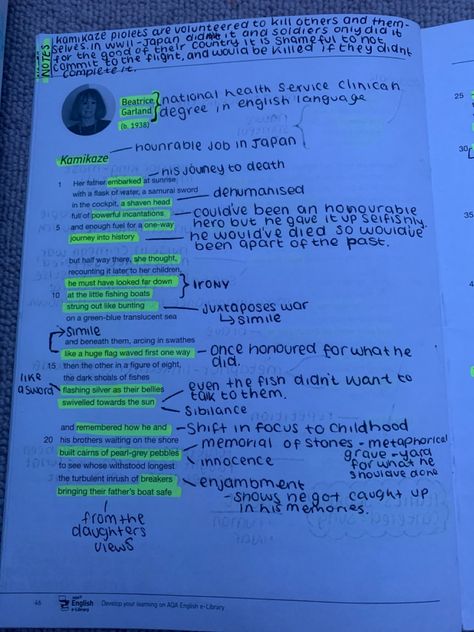 NOTES
Kamikaze piolets are volunteered to kill others and them-
selves. In WWII - Japan did it and soldiers only did it
for the good of their country. It is shameful to not
commit to the flight, and would be killed if they didnt
complete it.
Beatrice
Garland
(b. 1938)
national health Service clinican
degree in english language
Kamikaze
- hounrable job in Japan
- his jouney to death
1 Her father embarked at sunrise
with a flask of water, a samurai sword
- dehumanised
in the cockpit, a shaven head
full of powerful incantations
5 and enough fuel for a one-way
journey into history
could've been an honourable
hero but he gave it up selfishly
he would've died so would've
been apart of the past.
but half way there, she thought,
recounting it later to her children,
he must have looked far down
10 at the little fishing boats
} IRONY
strung out like bunting
on a green-blue translucent sea
juxtaposes war
→ simile
→ Simile
and beneath them, arcing in swathes
like a huge flag waved first one way
- Once honoured for what he
did.
15 then the other in a figure of eight,
the dark shoals of fishes
flashing silver as their bellies
swivelled towards the sun
like
a sword
even the fish didn't want to
talk to them.
Sibilance
and remembered how he and
- Shift in focus to childhood
20 his brothers waiting on the shore
built cairns of pearl-grey pebbles
memorial of stones - metaphorical
grave-yard
for what he
shoulave done
innocence
to see whose withstood longest
the turbulent inrush of breakers
bringing their father's boat safe
enjambment
- shows he got caught up
in his memories.
from the
daughters
views
25
30
35
46
AQA
English
e-Library
Develop your learning on AQA English e-Library